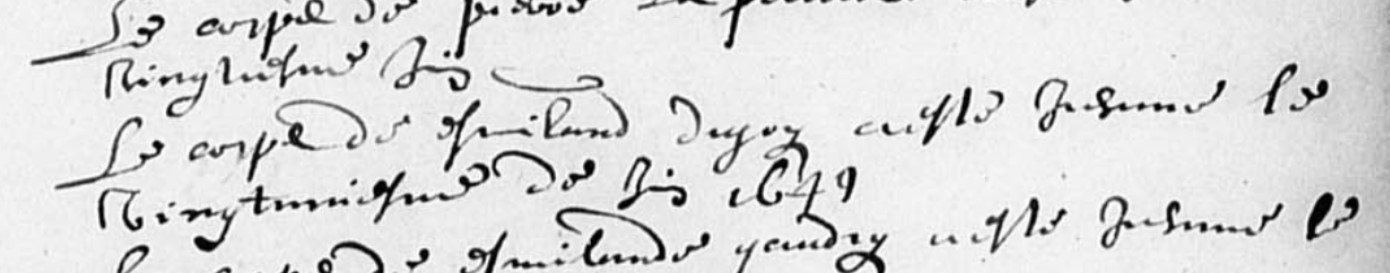 Le corps de pierre
Vingtiesme Juin
Le corps de esmiland dugoy a esté Inhumé le
Vingtuniesme de Juin 1649
de esmilande gaudry a esté Inhumé le